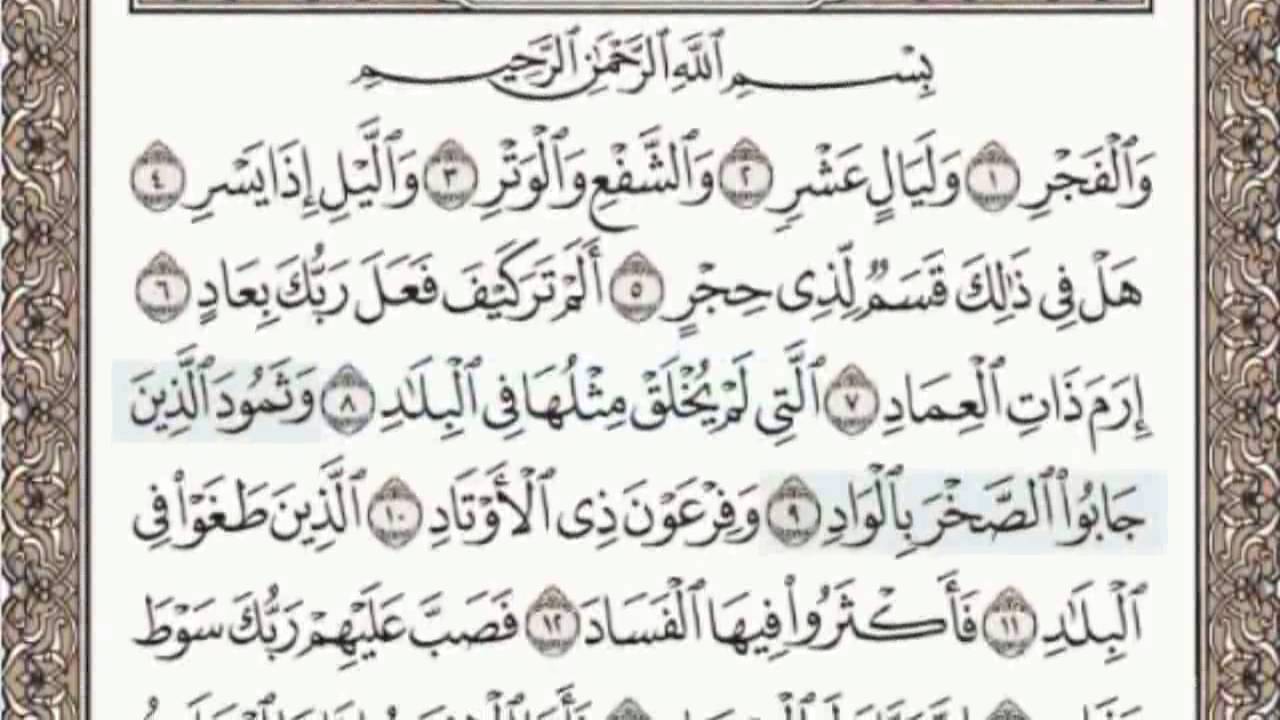 بِسْمِ ٱللَّهِ ٱلرَّحْمَٰنِ ٱلرَّحِيمِ
وَٱلْفَجْرِ ١ وَلَيَالٍ عَشْرٍ ٢ وَٱلشَّفْعِ وَٱلْوَتْرِ ٣ وَٱلَّيْلِ إِذَا يَسْرِ ٤
هَلْ فِى ذَٰلِكَ قَسَمٌ لِّذِى حِجْرٍ ٥ أَلَمْ تَرَ كَيْفَ فَعَلَ رَبُّكَ بِعَادٍ ٦
إِرَمَ ذَاتِ ٱلْعِمَادِ ٧ ٱلَّتِى لَمْ يُخْلَقْ مِثْلُهَا فِى ٱلْبِلَٰدِ ٨ وَثَمُودَ ٱلَّذِينَ
جَابُوا۟ ٱلصَّخْرَ بِٱلْوَادِ ٩ وَفِرْعَوْنَ ذِى ٱلْأَوْتَادِ ١٠ ٱلَّذِينَ طَغَوْا۟ فِى
ٱلْبِلَٰدِ ١١ فَأَكْثَرُوا۟ فِيهَا ٱلْفَسَادَ ١٢ فَصَبَّ عَلَيْهِمْ رَبُّكَ سَوْطَ